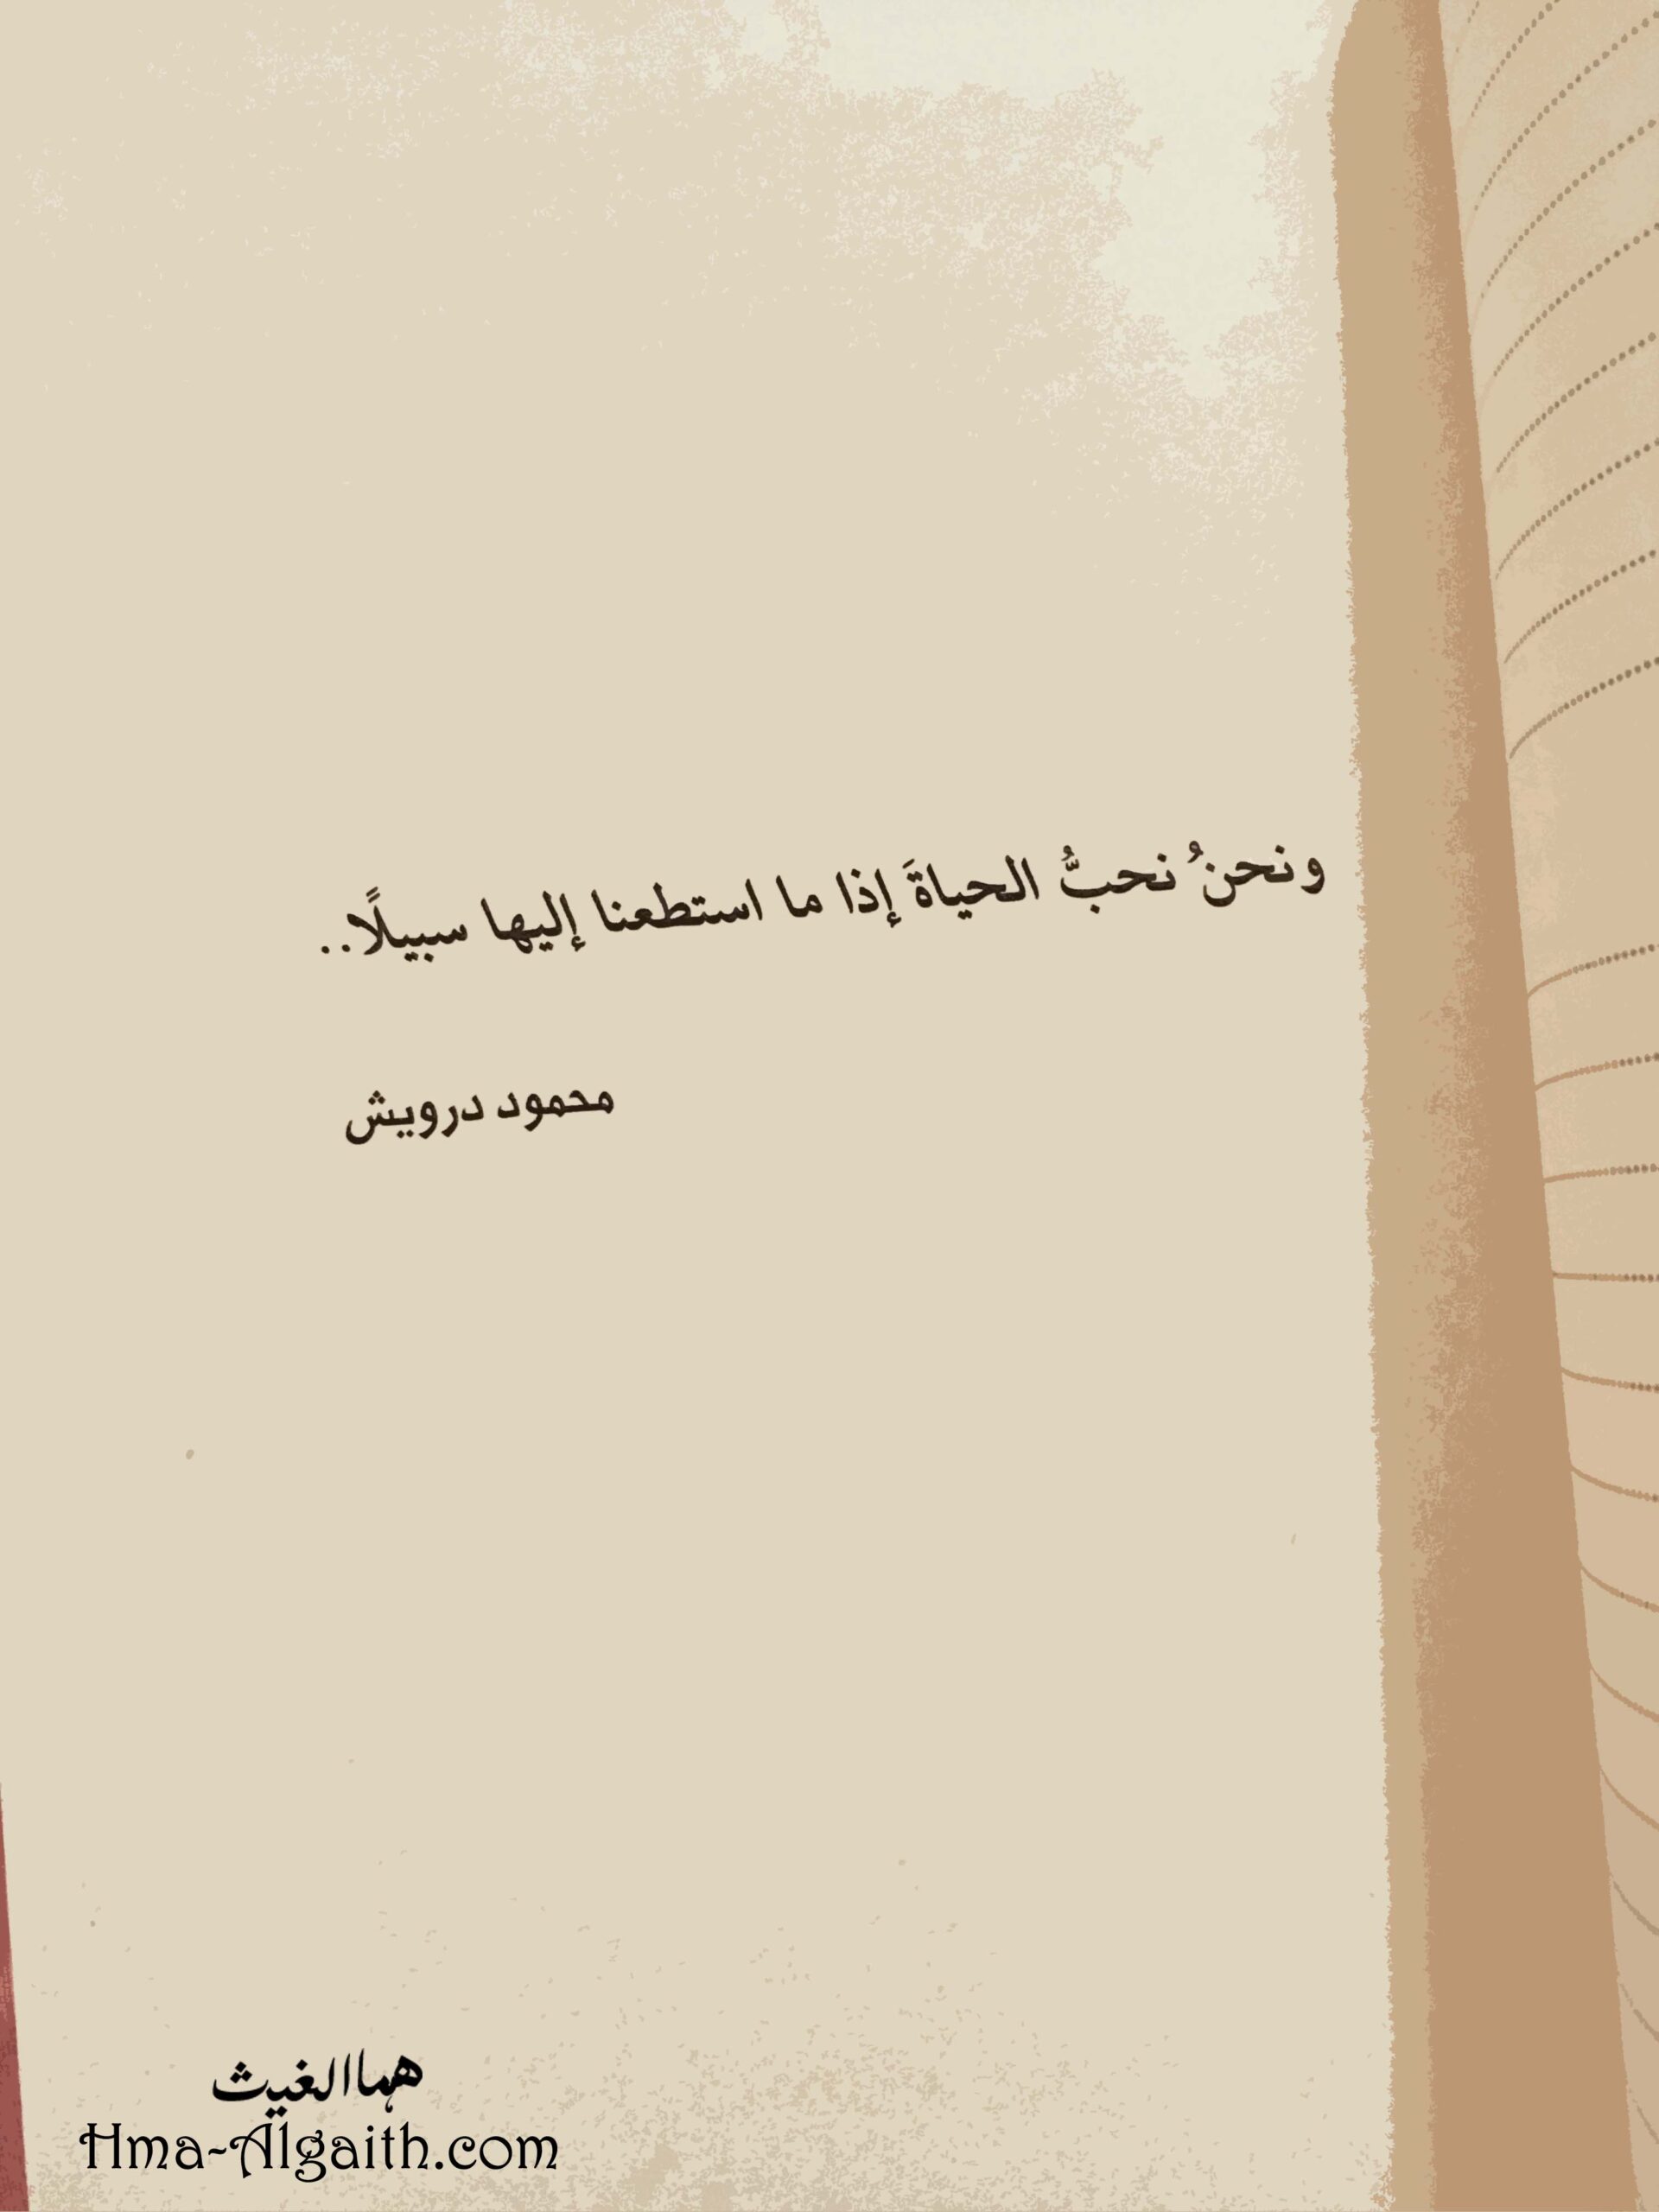 ونحنُ نحبُّ الحياةَ إذا ما استطعنا إليها سبيلًا..
محمود درويش
هما الغيث
Hma-Algaith.com